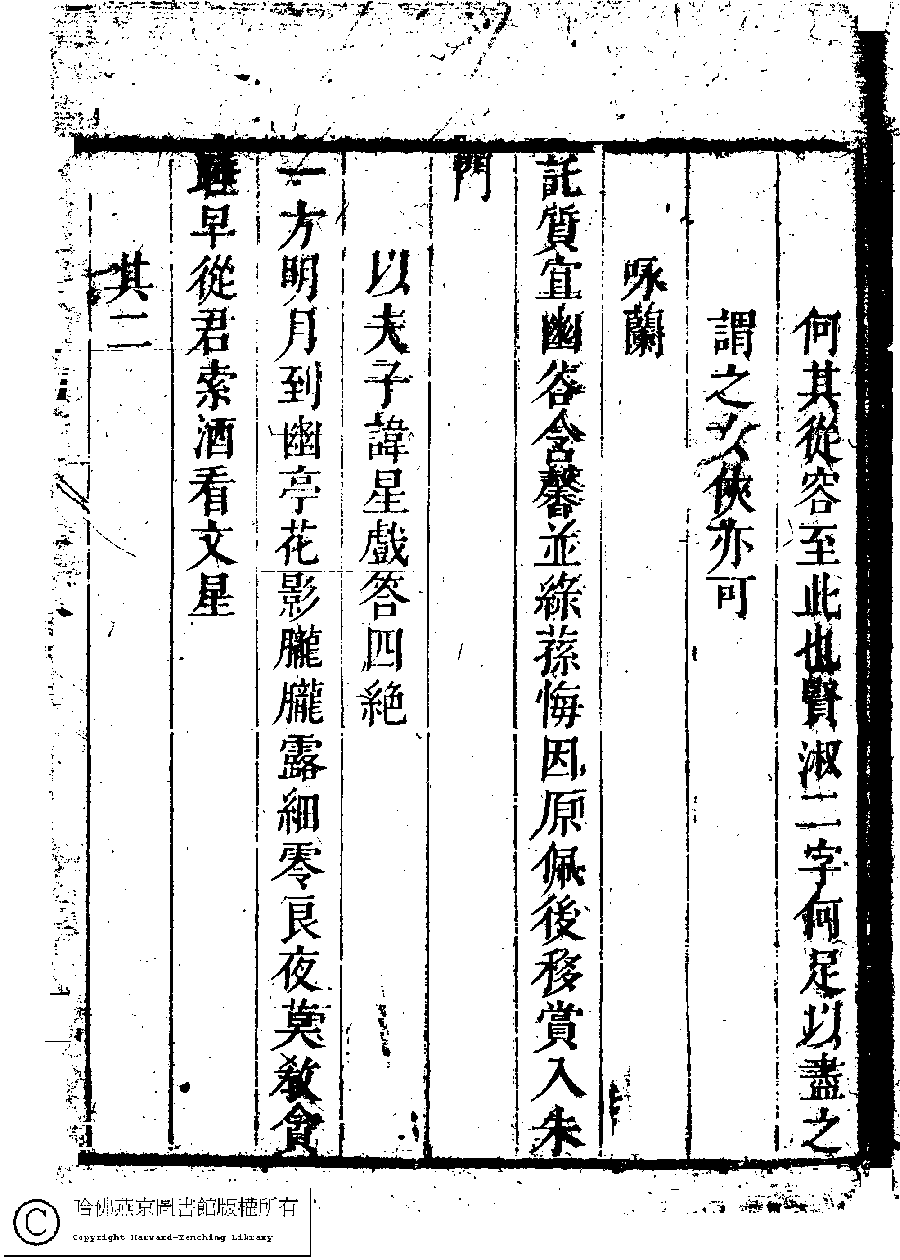 何其從容至此也賢淑二字何足以盡之
謂之女俠亦可
咏蘭
託質宜幽谷含馨並綠蓀悔因原佩後移賞入朱
門
以夫子諱星戲答四絶
一方明月到幽亭花影朧朧露細零良夜莫教貪
睡早從君索酒看文星
其二
哈佛燕京圖書館版權所有
Copyright Harvard-Yenching Library